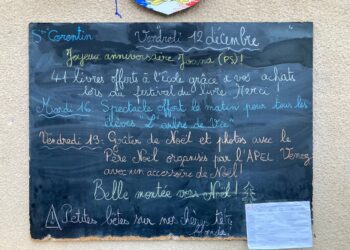 Ste Corentin Vendredi 12 décembre
Joyeux anniversaire Joana (PS)!
41 livres offerts à l'école grâce à vos achats
lors du festival du livre Merci!
Mardi 16: Spectacle offert le matin pour tous les
élèves L'arbre de vie"
Vendredi 19: Goûter de Noël et photos avec le
Père Noël organisés par l'APEL Venez
avec un accessoire de Noël!
Belle montée vers Noël!
Petites bêtes sur nos têtes